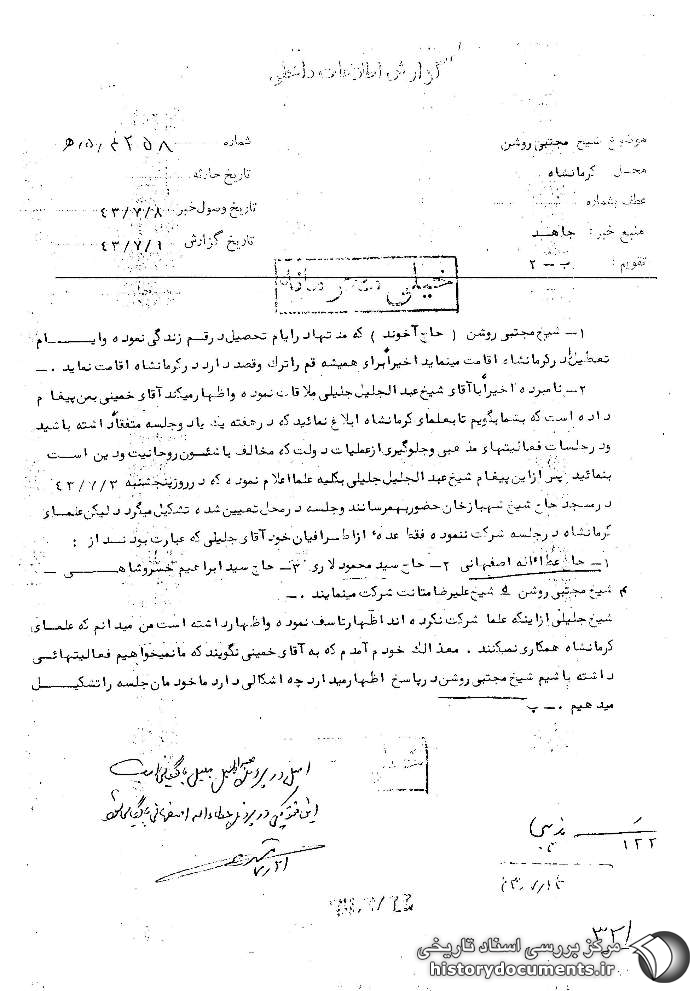 گزارش اطلاعات داخلی
موضوع شیخ مجتبی روشن
شماره ۲۵۸
محل کرمانشاه
تاریخ حادثه
عطف بشماره
تاریخ وصول خبر ۴۳/۷/۸
منبع خبر: جاهد
تاریخ گزارش ۴۳/۷/۱
تقویم: ب - ۲
خیلی محرمانه
۱- شیخ مجتبی روشن (حاج آخوند) که مدتها در ایام تحصیل در قم زندگی نموده و ایام
تعطیل در کرمانشاه اقامت مینماید اخیراً برای همیشه قم را ترک و قصد دارد در کرمانشاه اقامت نماید .-
۲- نامبرده اخیراً با آقای شیخ عبدالجلیل جلیلی ملاقات نموده و اظهار میکند آقای خمینی بمن پیغام
داده است که بشما بگویم تا بعلمای کرمانشاه ابلاغ نمائید که در هفته یک یا دو جلسه متفقاً داشته باشید
و در جلسات فعالیتهای مذهبی و جلوگیری از عملیات دولت که مخالف با شئون روحانیت و دین است
بنمائید پس از این پیغام شیخ عبدالجلیل جلیلی بکلیه علما اعلام نموده که در روز پنجشنبه ۴۳/۷/۲
در مسجد حاج شیخ شهبازخان حضور بهمرسانند و جلسه در محل تعیین شده تشکیل میگردد لیکن علمای
کرمانشاه در جلسه شرکت ننموده فقط عده ای از اطرافیان خود آقای جلیلی که عبارت بودند از :
۱- حاج عطاءاله اصفهانی ۲- حاج سید محمود لاری ۳- حاج سید ابراهیم خسروشاهی -
۴ شیخ مجتبی روشن ۵ شیخ علیرضا متانت شرکت مینمایند .-
شیخ جلیلی از اینکه علما شرکت نکرده اند اظهار تاسف نموده و اظهار داشته است من میدانم که علمای
کرمانشاه همکاری نمیکنند . معذالک خودم آمدم که به آقای خمینی نگویند که ما نمیخواهیم فعالیتهائی
داشته باشیم شیخ مجتبی روشن در پاسخ اظهار میدارد چه اشکالی دارد ما خودمان جلسه را تشکیل
میدهیم .- پ
اصل در پرونده عبدالجلیل جلیلی بایگانی است
این فتوکپی در پرونده عطاءاله اصفهانی بایگانی شود
۷/۲۱
۱۲۲
۳۲۱
مرکز بررسی اسناد تاریخی
historydocuments.ir